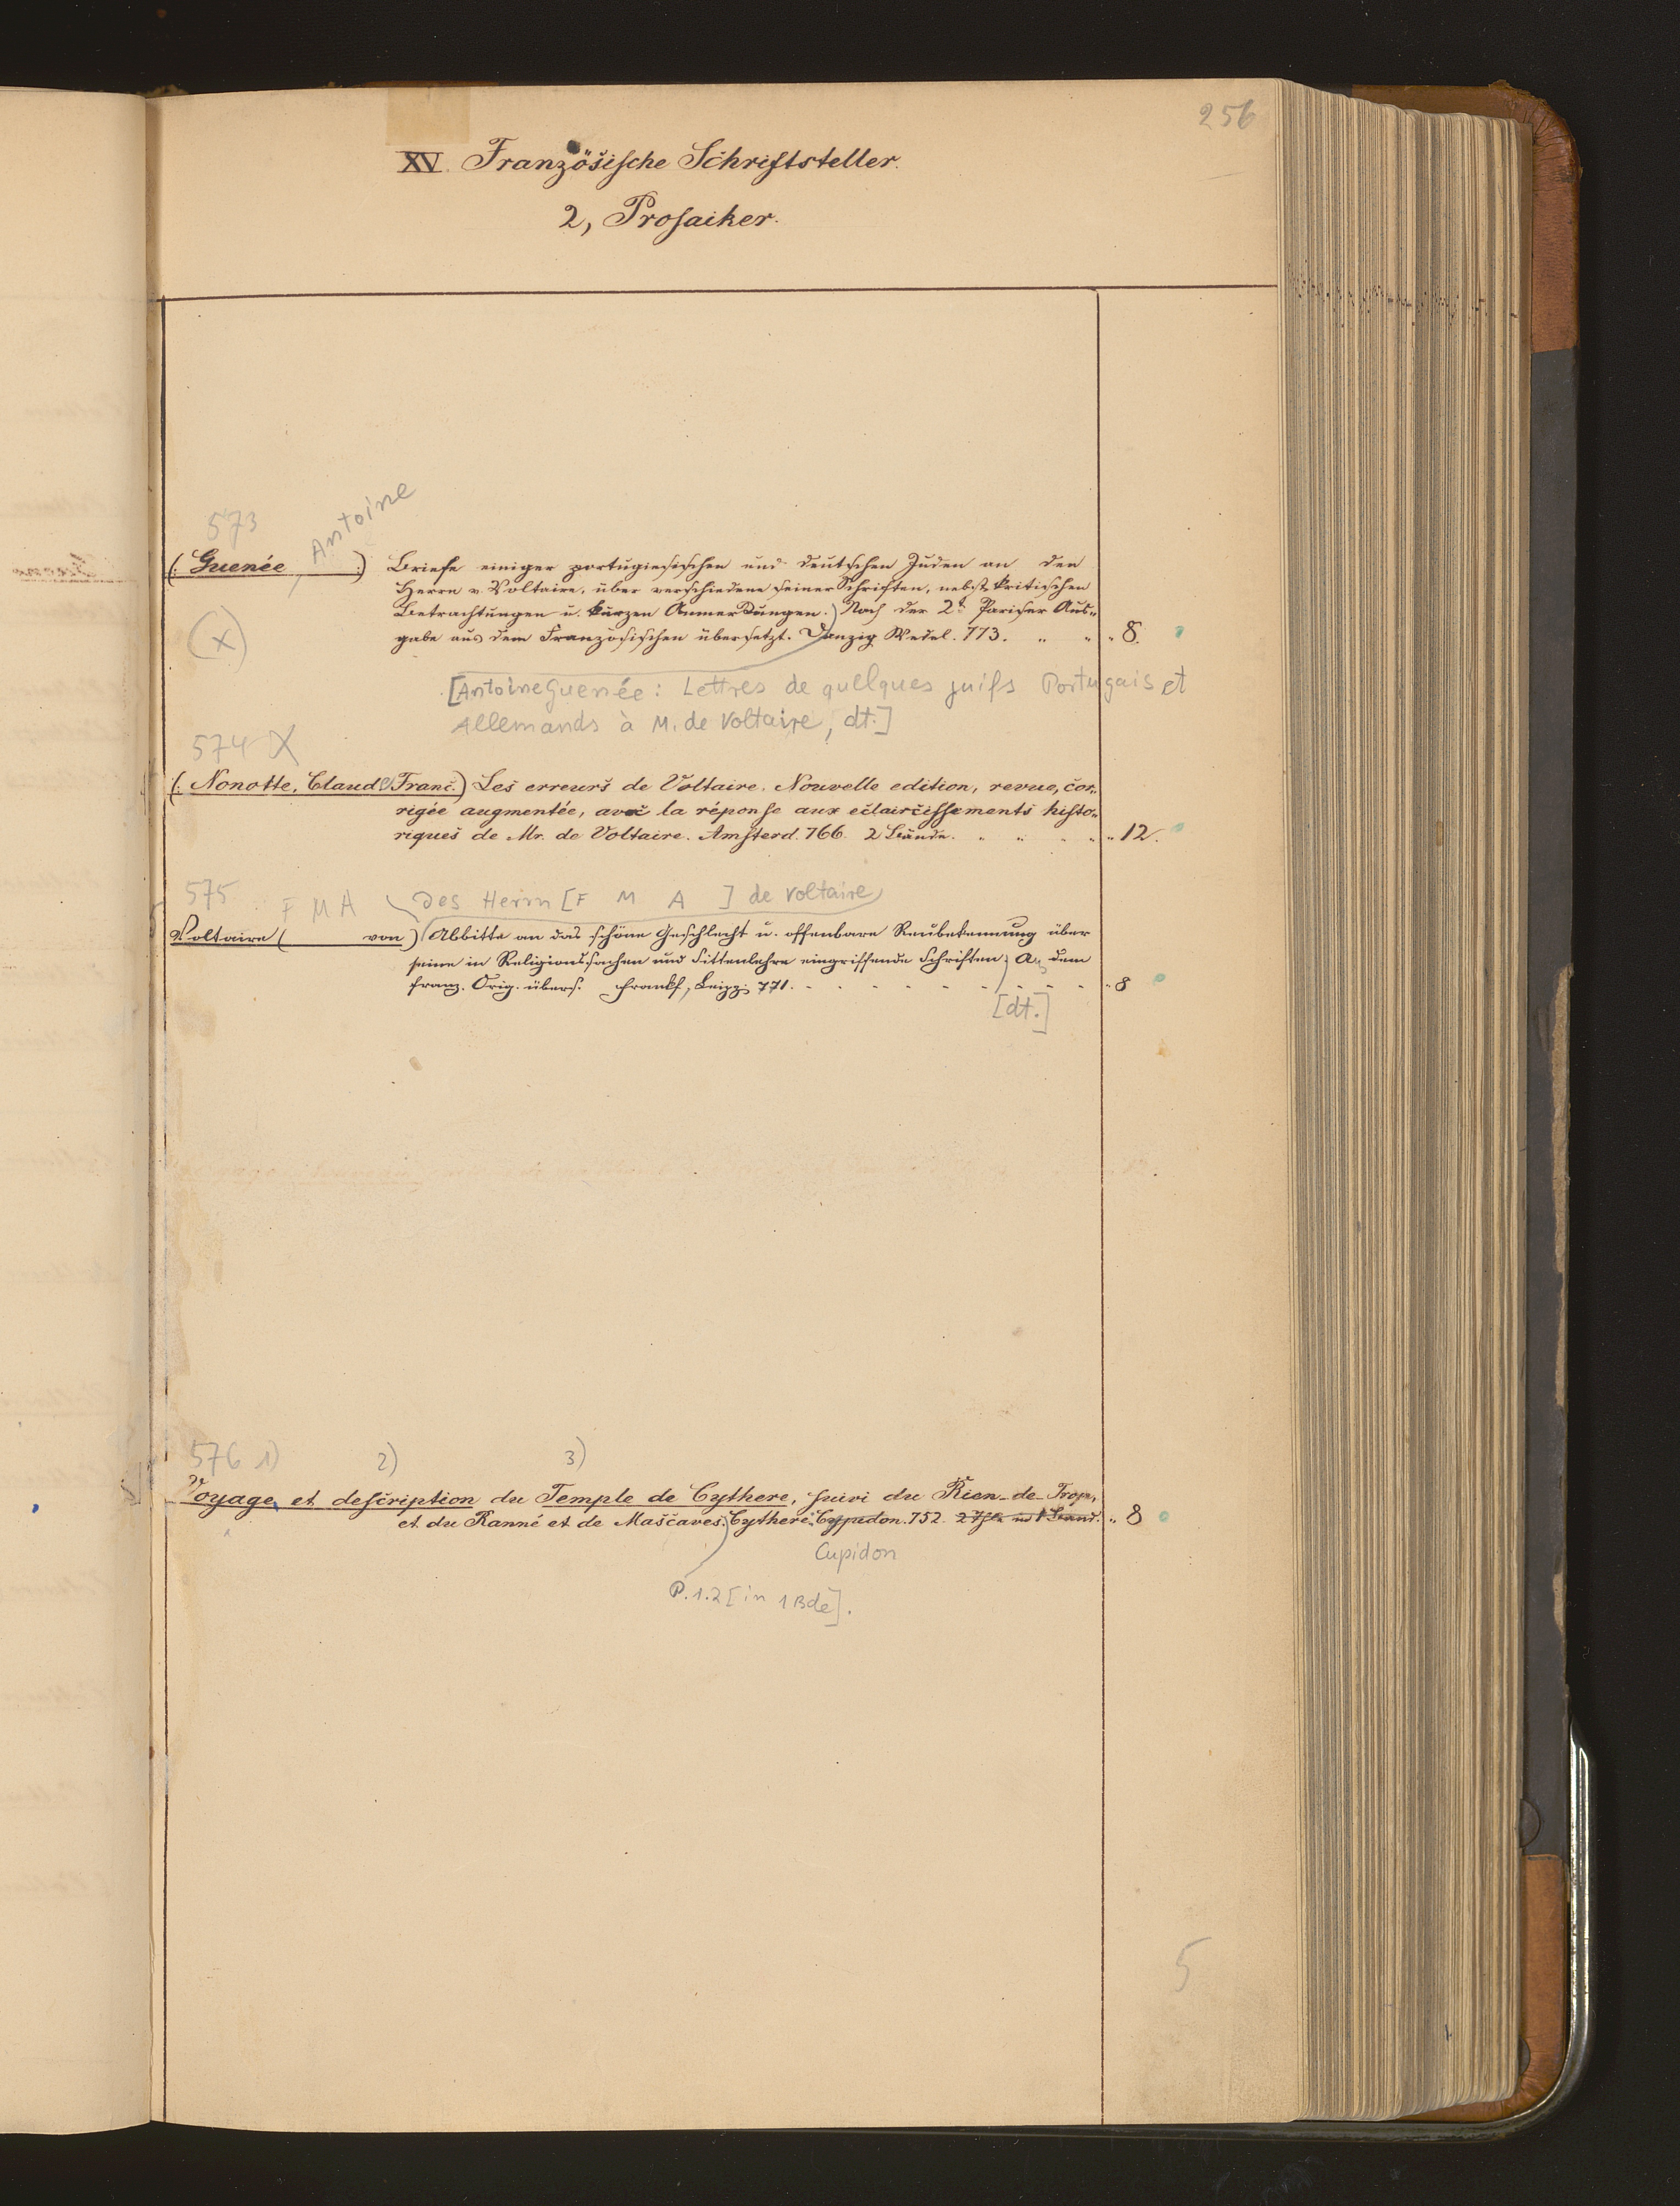 256
XV. Französische Schriftsteller.
2, Prosaiker.
573
Antoine
(: Guenée :) Briefe einiger portugiesischen und deutschen Juden an den
Herrn v. Voltaire, über verschiedene seiner Schriften, nebst kritischen
(x) Betrachtungen u. kurzen Anmerkungen.) Nach der 2t. Pariser Aus-
gabe aus dem Französischen übersetzt. Danzig Wedel. 773. " " " 8.
[Antoine Guenée: Lettres de quelques juifs Portugais et
Allemands à M. de Voltaire, dt.]
574 X
(: Nonotte, Claude Franc.) Les erreurs de Voltaire. Nouvelle edition, revue, cor-
rigée augmentée, avec la réponse aux eclaircissements histo-
riques de Mr. de Voltaire. Amsterd. 766. 2 Bände. " " " " " 12.
575 F M A Des Herrn [F M A ] de Voltaire
Voltaire ( von) Abbitte an das schöne Geschlecht u. offenbare Reubekennung über
seine in Religionssachen und Sittenlehre eingriffende Schriften; Aus dem
franz. Orig. übers. Frankf, Leipz. 771. - - - - - - - - " 8
[dt.]
576 1) 2) 3)
Voyage et description du Temple de Cythere, suivi du Rien-de-Trop,
et du Ranné et de Mascaves. Cythere: Cypidon. 752. 2 Thle in 1 Band. " 8
Cupidon
P. 1.2 [in 1 Bde].
5